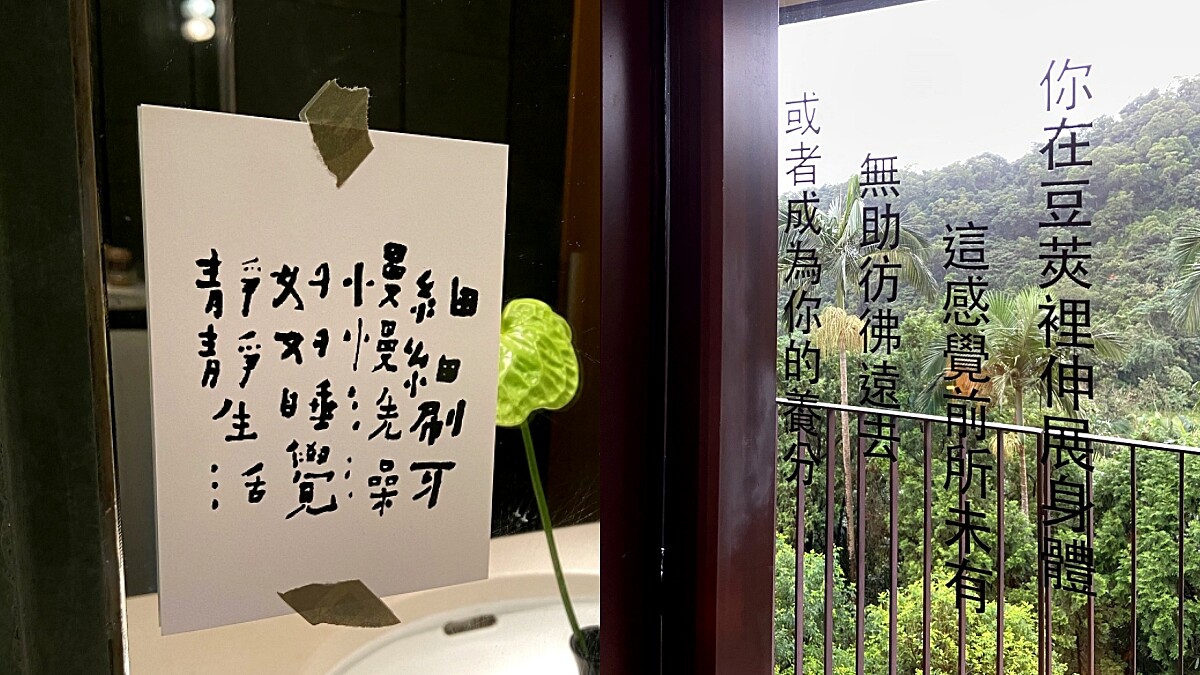 細細刷牙
慢慢洗澡
好好睡覺
靜靜生活
你在豆莢裡伸展身體
這感覺前所未有
無助彷彿遠去
或者成為你的養分